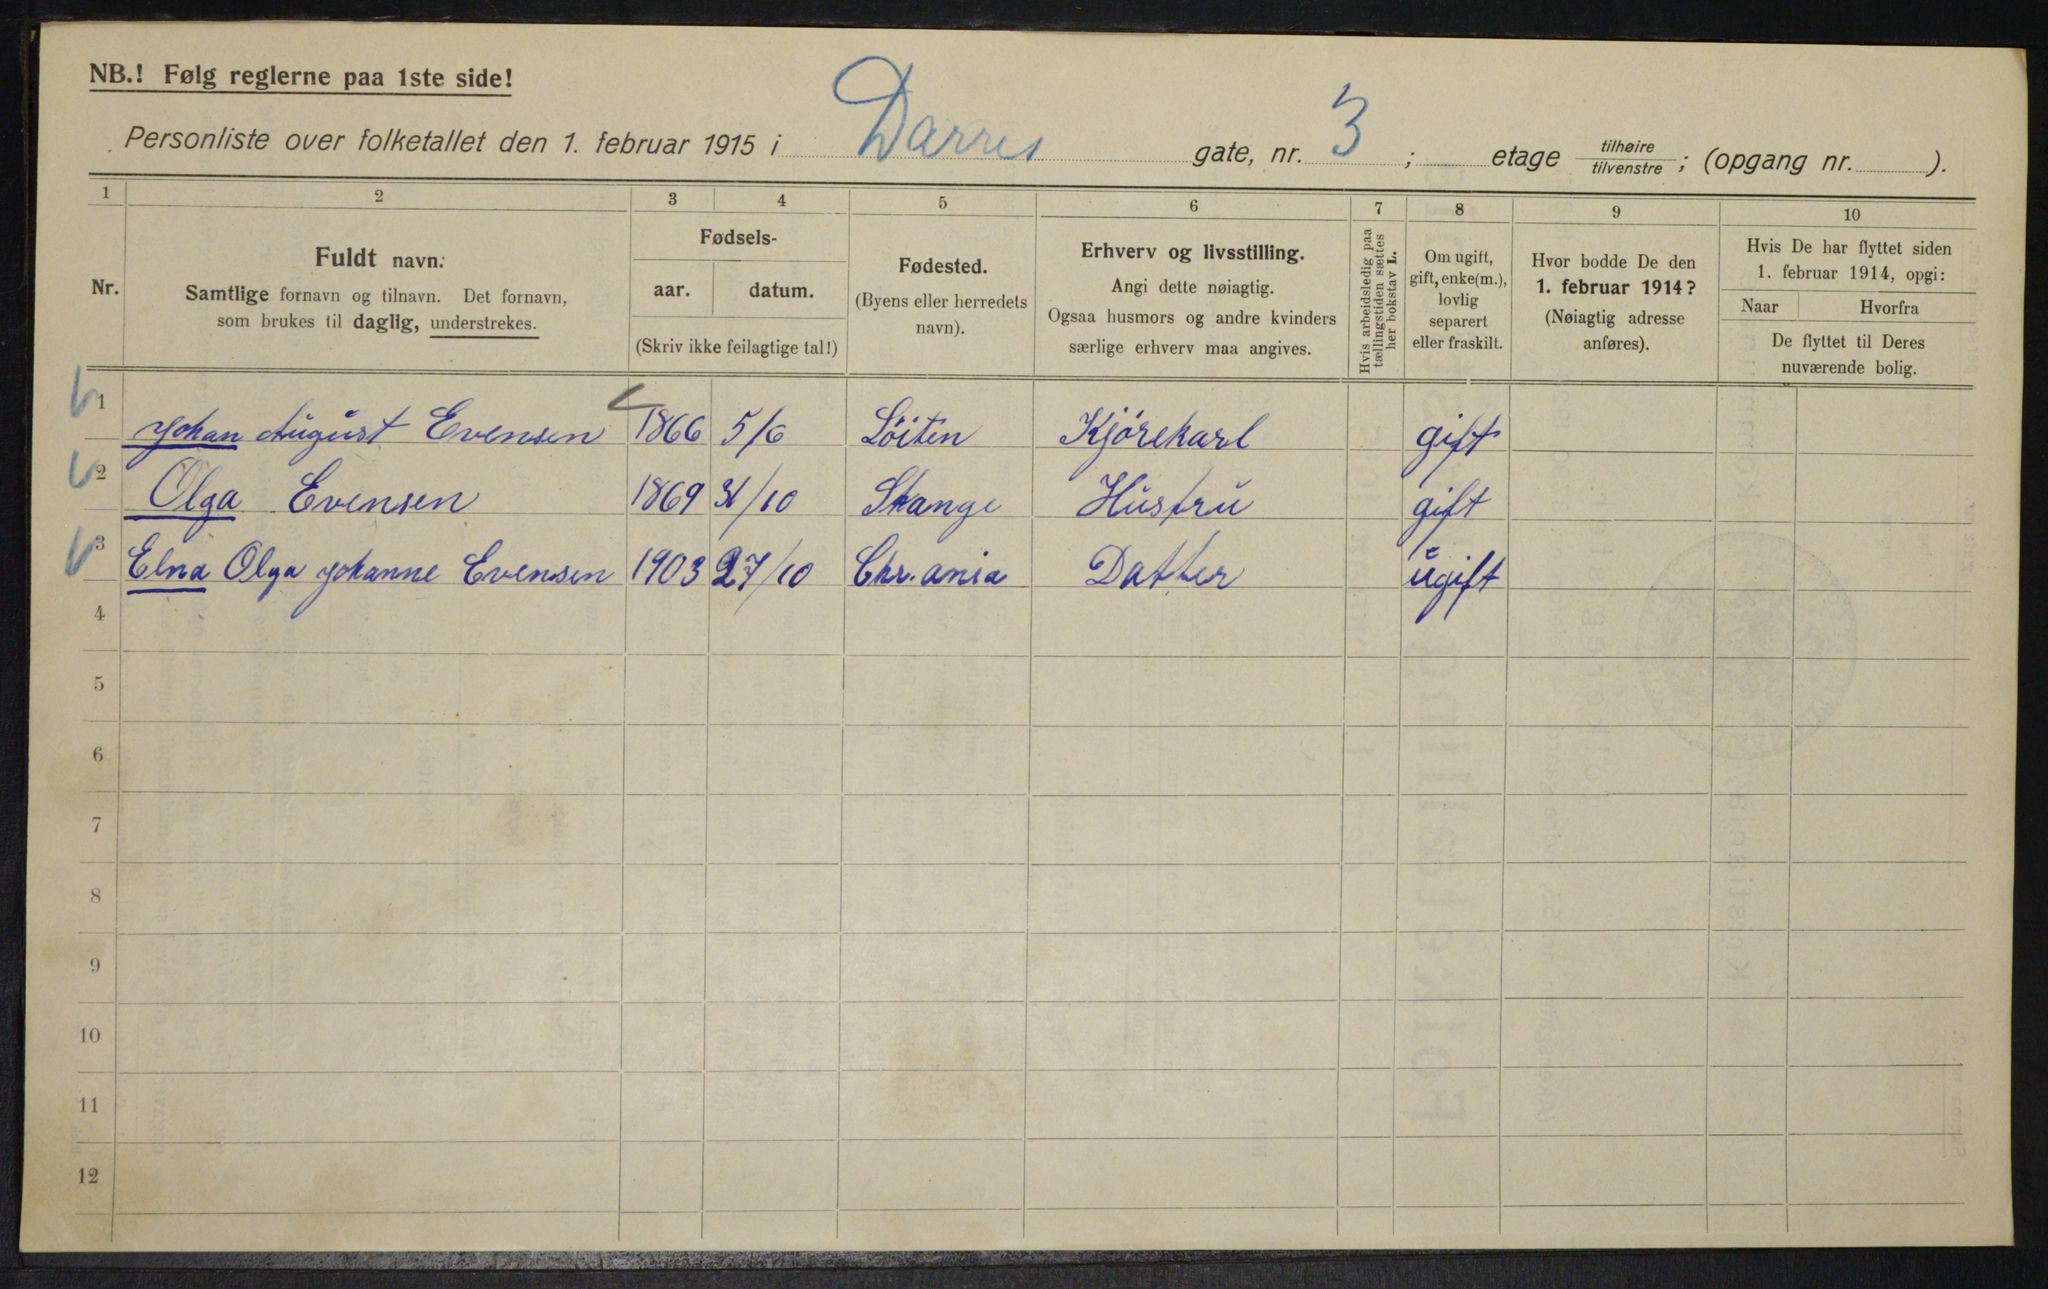 NB.! Følg reglerne paa 1ste side!
Personliste over folketallet den 1. februar 1915 i Darres gate, nr. 3 ; etage tilhøire / tilvenstre ; (opgang nr. ).
1 2 3 4 5 6 7 8 9 10
Nr.
Fuldt navn.
Samtlige fornavn og tilnavn. Det fornavn,
som brukes til daglig, understrekes.
Fødsels-
aar. datum.
(Skriv ikke feilagtige tal!)
Fødested.
(Byens eller herredets
navn).
Erhverv og livsstilling.
Angi dette nøiagtig.
Ogsaa husmors og andre kvinders
særlige erhverv maa angives.
Hvis arbeidsledig paa
tællingstiden sættes
her bokstav L.
Om ugift,
gift, enke(m.),
lovlig
separert
eller fraskilt.
Hvor bodde De den
1. februar 1914?
(Nøiagtig adresse
anføres).
Hvis De har flyttet siden
1. februar 1914, opgi:
Naar Hvorfra
De flyttet til Deres
nuværende bolig.
1 Johan August Evensen 1866 5/6 Löiten Kjörekarl gift
2 Olga Evensen 1869 31/10 Stange Hustru gift
3 Elna Olga Johanne Evensen 1903 27/10 Chr.ania Datter ugift
4
5
6
7
8
9
10
11
12